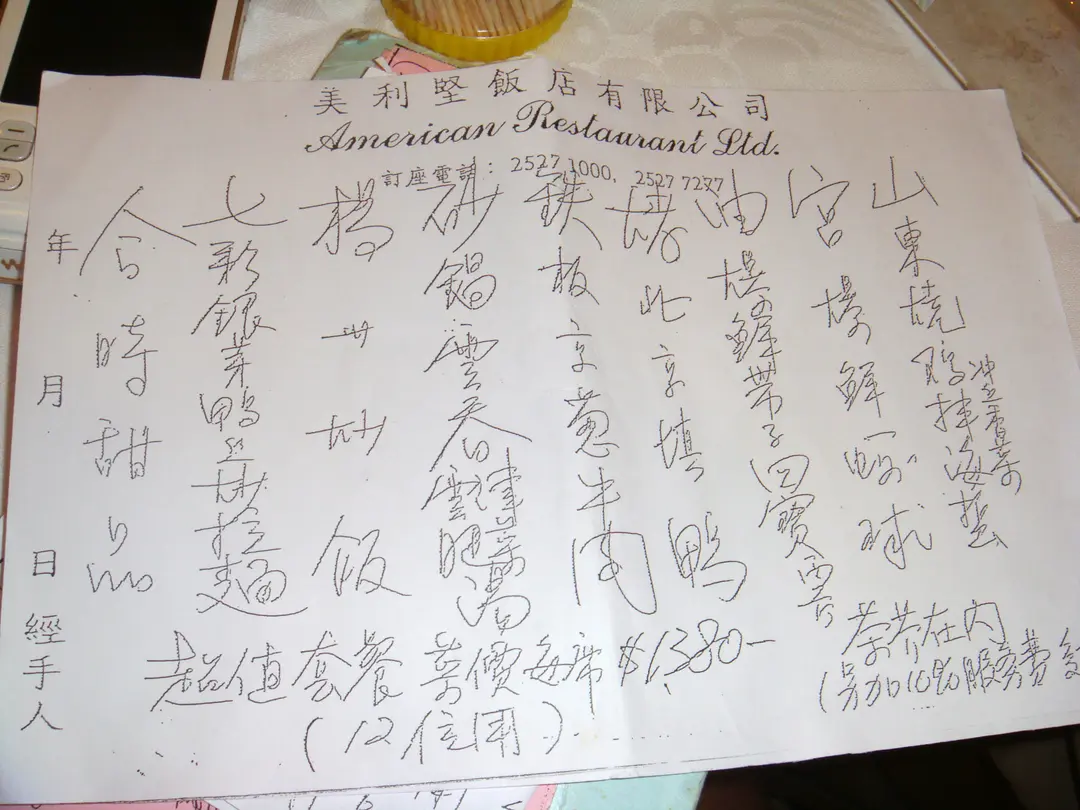 美利堅飯店有限公司
American Restaurant Ltd.
訂座電話：2527 1000, 2527 7277
山東燒雞拌海蜇
宮爆鮮蝦球
油爆鮮帶子
烤北京填鴨
鉄板京葱牛肉
砂鍋雲吞雞湯
楊州炒飯
七彩銀芽鴨絲炒拉麵
合時甜品
超值套餐 菜價每席 $1380-
(12位用)
茶芥在內
(另加10%服務費
年 月 日 經手人